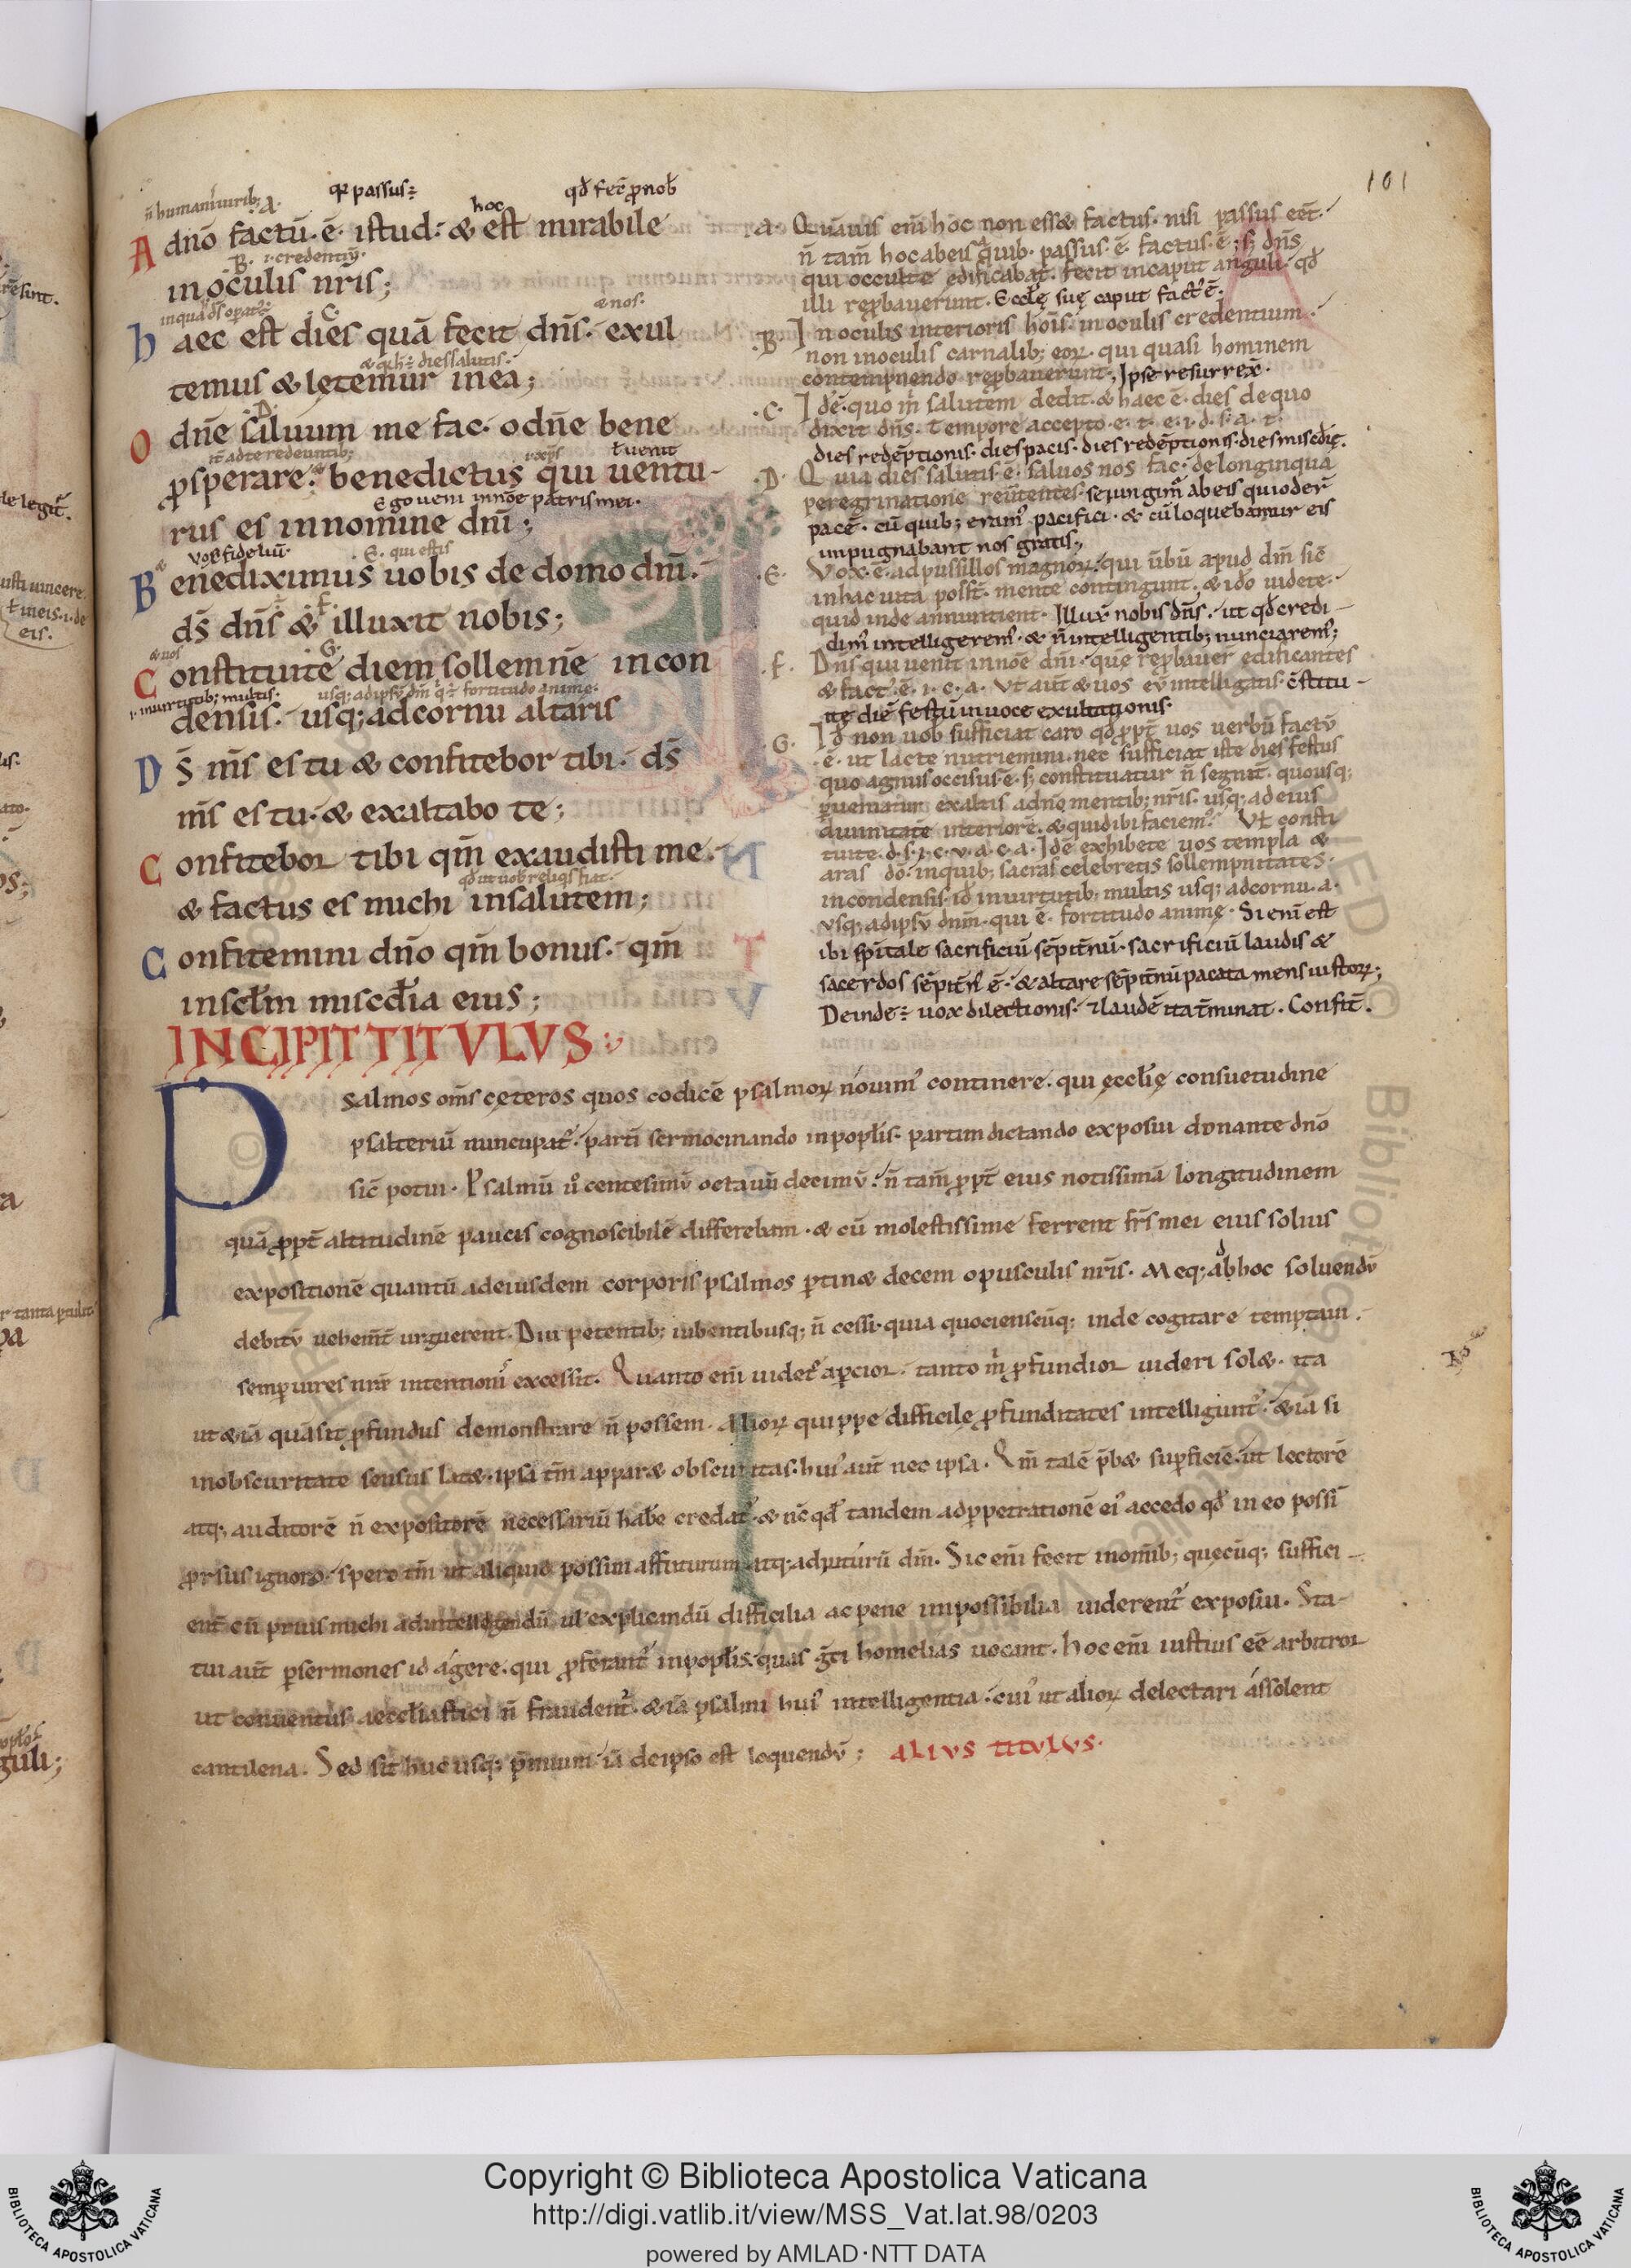 101
n̄ humanis uirib; .a. qͥ passus ÷ hoc qd̄ fec̄ ꝓ nob̄
A dn̄o factū ē istud ⁊ & est mirabile
.B. .i. credentiū
in oculis nr̄is;
in qua ds̄ operat᷑ .C. & nos
haec est dies quā fecit dn̄s. exul
dies salutis
temus & lętemur in ea;
.D.
O dn̄e saluum me fac. o dn̄e bene
ad te redeuntib; ł uenit
ꝓsperare. benedictus qui uentu-
Ego ueni in noē patris mei.
rus es in nomine dn̄i;
uox fideliū .E. qui estis
Benediximus uobis de domo dn̄i.
.F.
ds̄ dn̄s & illuxit nobis;
& nos .G.
Constituite diem sollemnē in con
.i. in uirtutib; multis. usq; ad ipsū dm̄ q̇ ÷ fortitudo animę.
densis. usq; ad cornu altaris
Ds̄ m̄s es tu & confitebor tibi. ds̄
m̄s es tu. & exaltabo te;
Confitebor tibi qm̄ exaudisti me.
& factus es michi in salutem;
Confitemini dn̄o qm̄ bonus. qm̄
in sc̄lm misc̄dia eius;
.a. Quāuis eni hoc non ess& factus. nisi passus eēt.
n̄ tam̄ hoc ab eis a quib. passus. ē. factus. ē; s; dn̄s
qui occulte edificabat. fecit in caput anguli. qd̄
illi reꝓbauerunt. Eccłę suę caput fact᷒ ē.
.B. In oculis interioris hoīs. in oculis credentium.
non in oculis carnalib; eoꝝ. qui quasi hominem
contempnendo reꝓbauerunt. Ipse resurrex̄.
.C. Id ē. quo m̄ salutem dedit. & haec ē. dies de quo
dixit dn̄s. Tempore accepto. e. t. e. i. d. s. a. t.
dies redēptionis. dies pacis. dies redēptionis. dies misc̄dię.
.D. Quia dies salutis. ē. saluos nos fac. de longinqua
peregrinatione reūtentes. seiungim᷒ ab eis qui oder̄
pacē. cū quib; eram᷒ pacifici. & cū loquebamur eis
impugnabant nos gratis.
.E. Vox. ē. ad pussillos magnoꝝ. qui ūbū apud dm̄ sic̄
in hac uita poss̄t. mente contingunt. & ido uidete.
quid inde annuntient. Illux̄ nobis dn̄s. ut qd̄ credi-
dim᷒ intelligerem᷒. & n̄ intelligentib; nunciarem᷒;
.F. Dn̄s qui uenit in noē dn̄i. quē reꝓbauer̄ edificantes
& fact᷒. ē. i. c. a. Vt aūt & uos eū intelligatis. c̄stitu-
ite diē festū in uoce exultationis.
.G. Id̄ non uob̄ sufficiat caro qd̄ ꝓpt̄ uos uerbū factū
.ē. ut lacte nutriemini. nec sufficiat iste dies festus
quo agnus occisus. ē. s; constituatur n̄ segnit̄. quousq;
ꝑueniatur exaltis a dn̄o mentib; nr̄is. usq; ad eius
diuinitatē interiorē. & quid ibi faciem᷒? Vt consti
tuite. d. s. i. c. v. a. c. a. Id ē exhibete uos templa &
aras do. in quib; sacras celebretis sollempnitates.
in condensis. id̄ in uirtutib; multis usq; ad cornu. a.
vsq; ad ipsū dnm̄. qui ē. fortitudo animę. Si eni est
ibi spītale sacrificiū sēpit̄nū. sacrificiū laudis &
sacerdos sēpit̄n᷒ ē. & altare sēpit̄nū pacata mens iustoꝝ;
Deinde ÷ uox dilectionis. ⁊ laudē ita t̄minat. Confit̄.
INCIPIT TITVLVS
Psalmos om̄s cęteros quos codicē psalmoꝝ nouim᷒ continere. qui ęccłię consuetudine
psalteriū nuncupat᷑. partī sermocinando in popłis. partim dictando exposui donante dn̄o
sic̄ potui. Psalmū u̇ centesimū octauū decimū. n̄ tam̄ ꝓpt̄ eius notissimā longitudinem
quā ꝓpt̄ altitudinē paucis cognoscibilē differebam. & cū molestissime ferrent fr̄s mei eius solius
expositionē quantū ad eiusdem corporis psalmos ꝑtin& decem opusculis nr̄is. Meq; ad hoc soluendū
debitū uehem̄t urguerent. Diu petentib; iubentibusq; n̄ cessi. quia quocienscūq; inde cogitare temptaui.
semꝑ uires nr̄e intentionis excessit. Quanto eni uidet᷑ aꝑcior. tanto m̄ ꝓfundior uideri sol&. ita
ut &iā quā sit ꝓfundus demonstrare n̄ possem. Alioꝝ quippe difficile ꝓfunditates intelligunt᷑. &iā si
in obscuritate sensus lat&. ipsa tm̄ appar& obscuritas. hui᷒ aūt nec ipsa. Qm̄ talē p̄b& suꝑficiē. ut lectorē
atq; auditorē n̄ expositorē necessariū habe credat᷑. & nc̄ qd̄ tandem ad ꝑpetrationē ei᷒ accedo qd̄ in eo possī
ꝓrsus ignoro. spero tm̄ ut aliquid possim affuturum atq; adiuturū dm̄. Sic eni fecit in omīb; quęcūq; suffici-
ent̄ cū prius michi ad intellegendū uł explicandū difficilia ac pene impossibilia uiderent᷑ exposui. Sta-
tui aūt ꝑ sermones id agere. qui ꝓferant᷑ in popłis. quas gr̄ci homelias uocant. hoc eni iustius eē arbitror
ut conuentus aecclīastici n̄ fraudent᷑. &iā psalmi hui᷒ intelligentia. cui᷒ ut alioꝝ delectari assolent
cantilena. Sed sit huc usq; ꝓhemium. iā de ipso est loquendū; ALIVS TITVLVS.
Copyright © Biblioteca Apostolica Vaticana
http://digi.vatlib.it/view/MSS_Vat.lat.98/0203
powered by AMLAD·NTT DATA
BIBLIOTECA APOSTOLICA VATICANA
BIBLIOTECA APOSTOLICA VATICANA